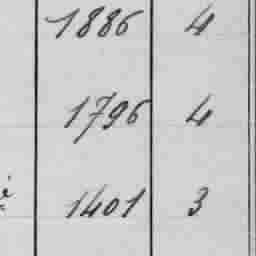 1886 4
1796 4
1401 3